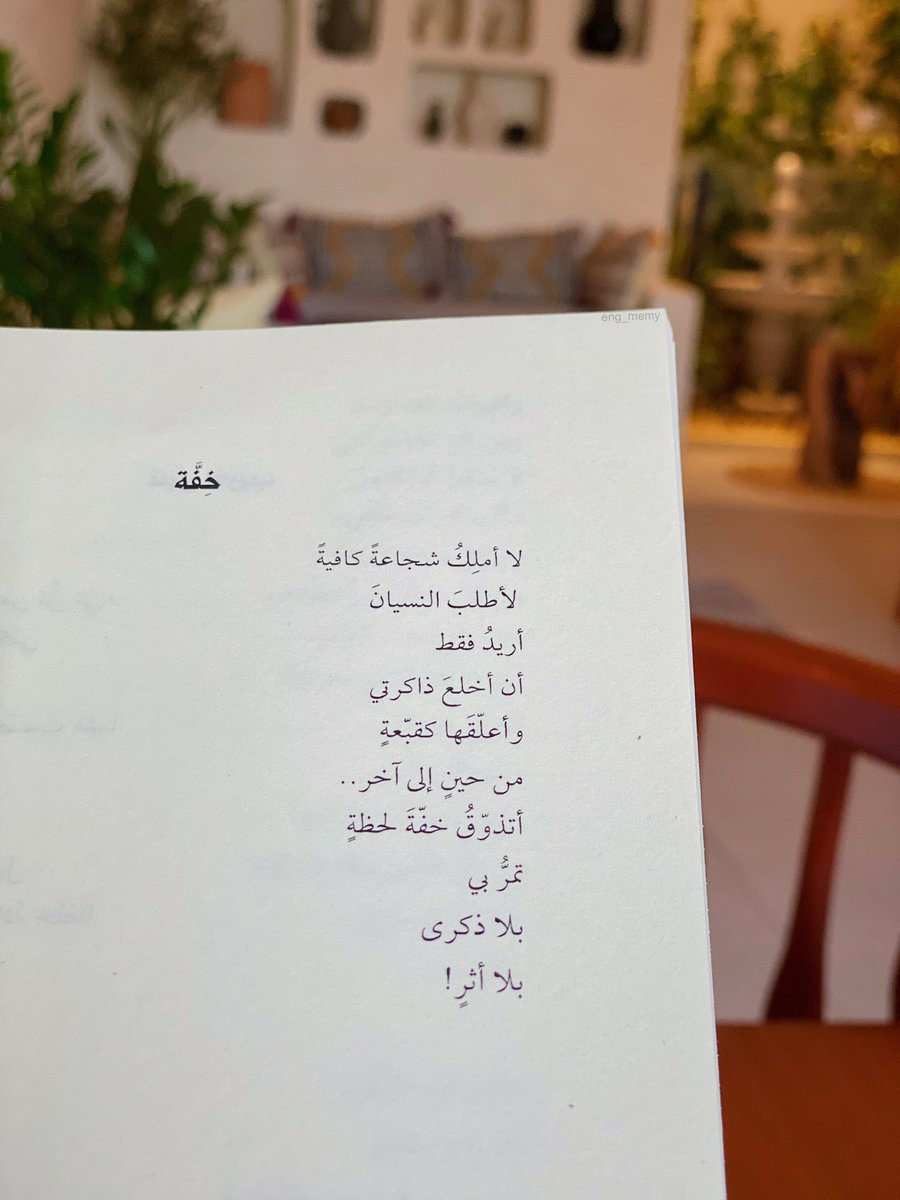 eng_memy
خِفَّة
لا أملِكُ شجاعةً كافيةً
لأطلبَ النسيانَ
أريدُ فقط
أن أخلعَ ذاكرتي
وأعلّقَها كقبّعةٍ
من حينٍ إلى آخر..
أتذوّقُ خفّةَ لحظةٍ
تمرُّ بي
بلا ذكرى
بلا أثرٍ!